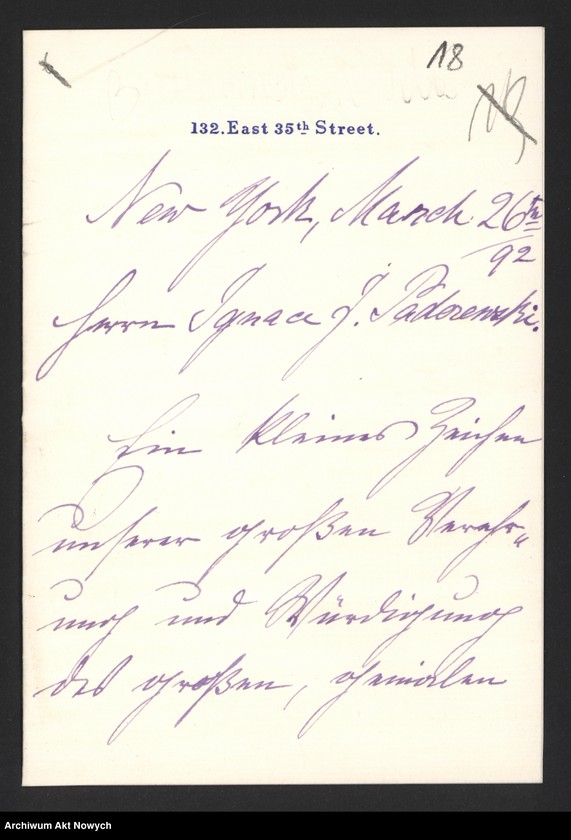 18
132.East 35th Street.
New York, March 26th
92
Herrn Ignace J. Paderewski.
Ein kleines Zeichen
unserer großen Verehr„
ung und Würdigung
des großen, genialen
Archiwum Akt Nowych